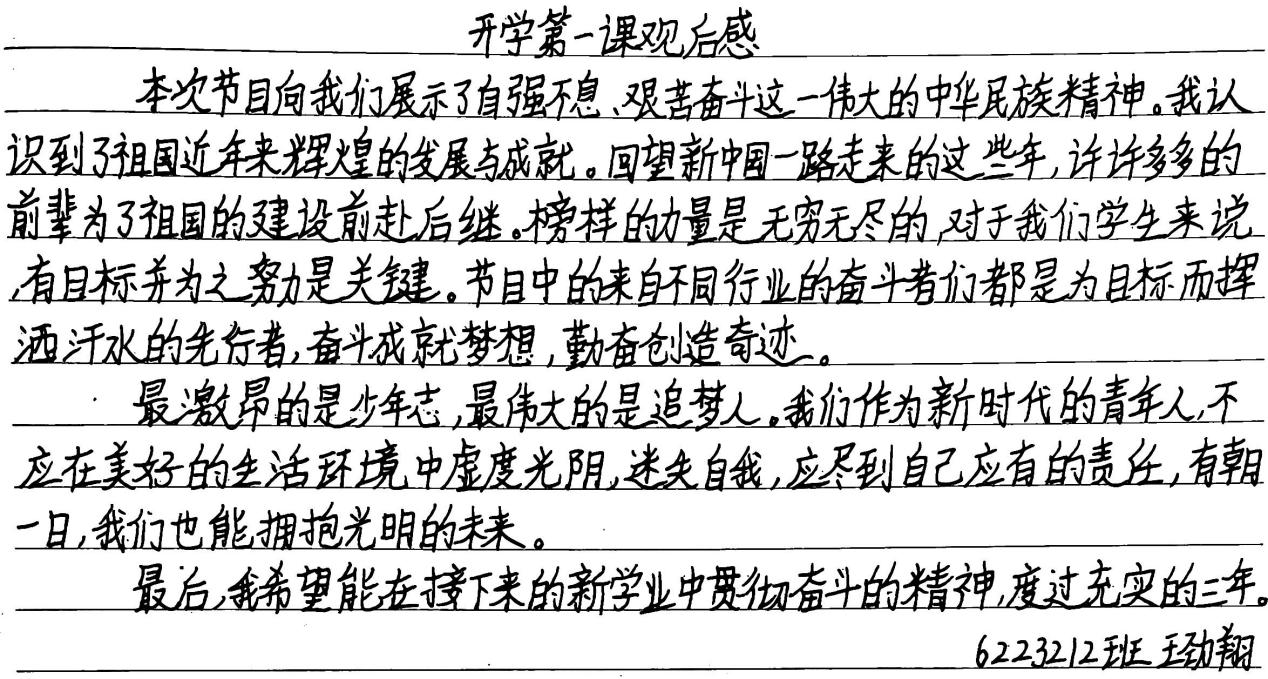 开学第一课观后感
本次节目向我们展示了自强不息、艰苦奋斗这一伟大的中华民族精神。我认
识到了祖国近年来辉煌的发展与成就。回望新中国一路走来的这些年,许许多多的
前辈为了祖国的建设前赴后继。榜样的力量是无穷无尽的,对于我们学生来说
,有目标并为之努力是关键。节目中的来自不同行业的奋斗者们都是为目标而挥
洒汗水的先行者,奋斗成就梦想,勤奋创造奇迹。
最激昂的是少年志,最伟大的是追梦人。我们作为新时代的青年人,不
应在美好的生活环境中虚度光阴,迷失自我,应尽到自己应有的责任,有朝
一日,我们也能拥抱光明的未来。
最后,我希望能在接下来的新学业中贯彻奋斗的精神,度过充实的三年。
6223212班 王劲翔